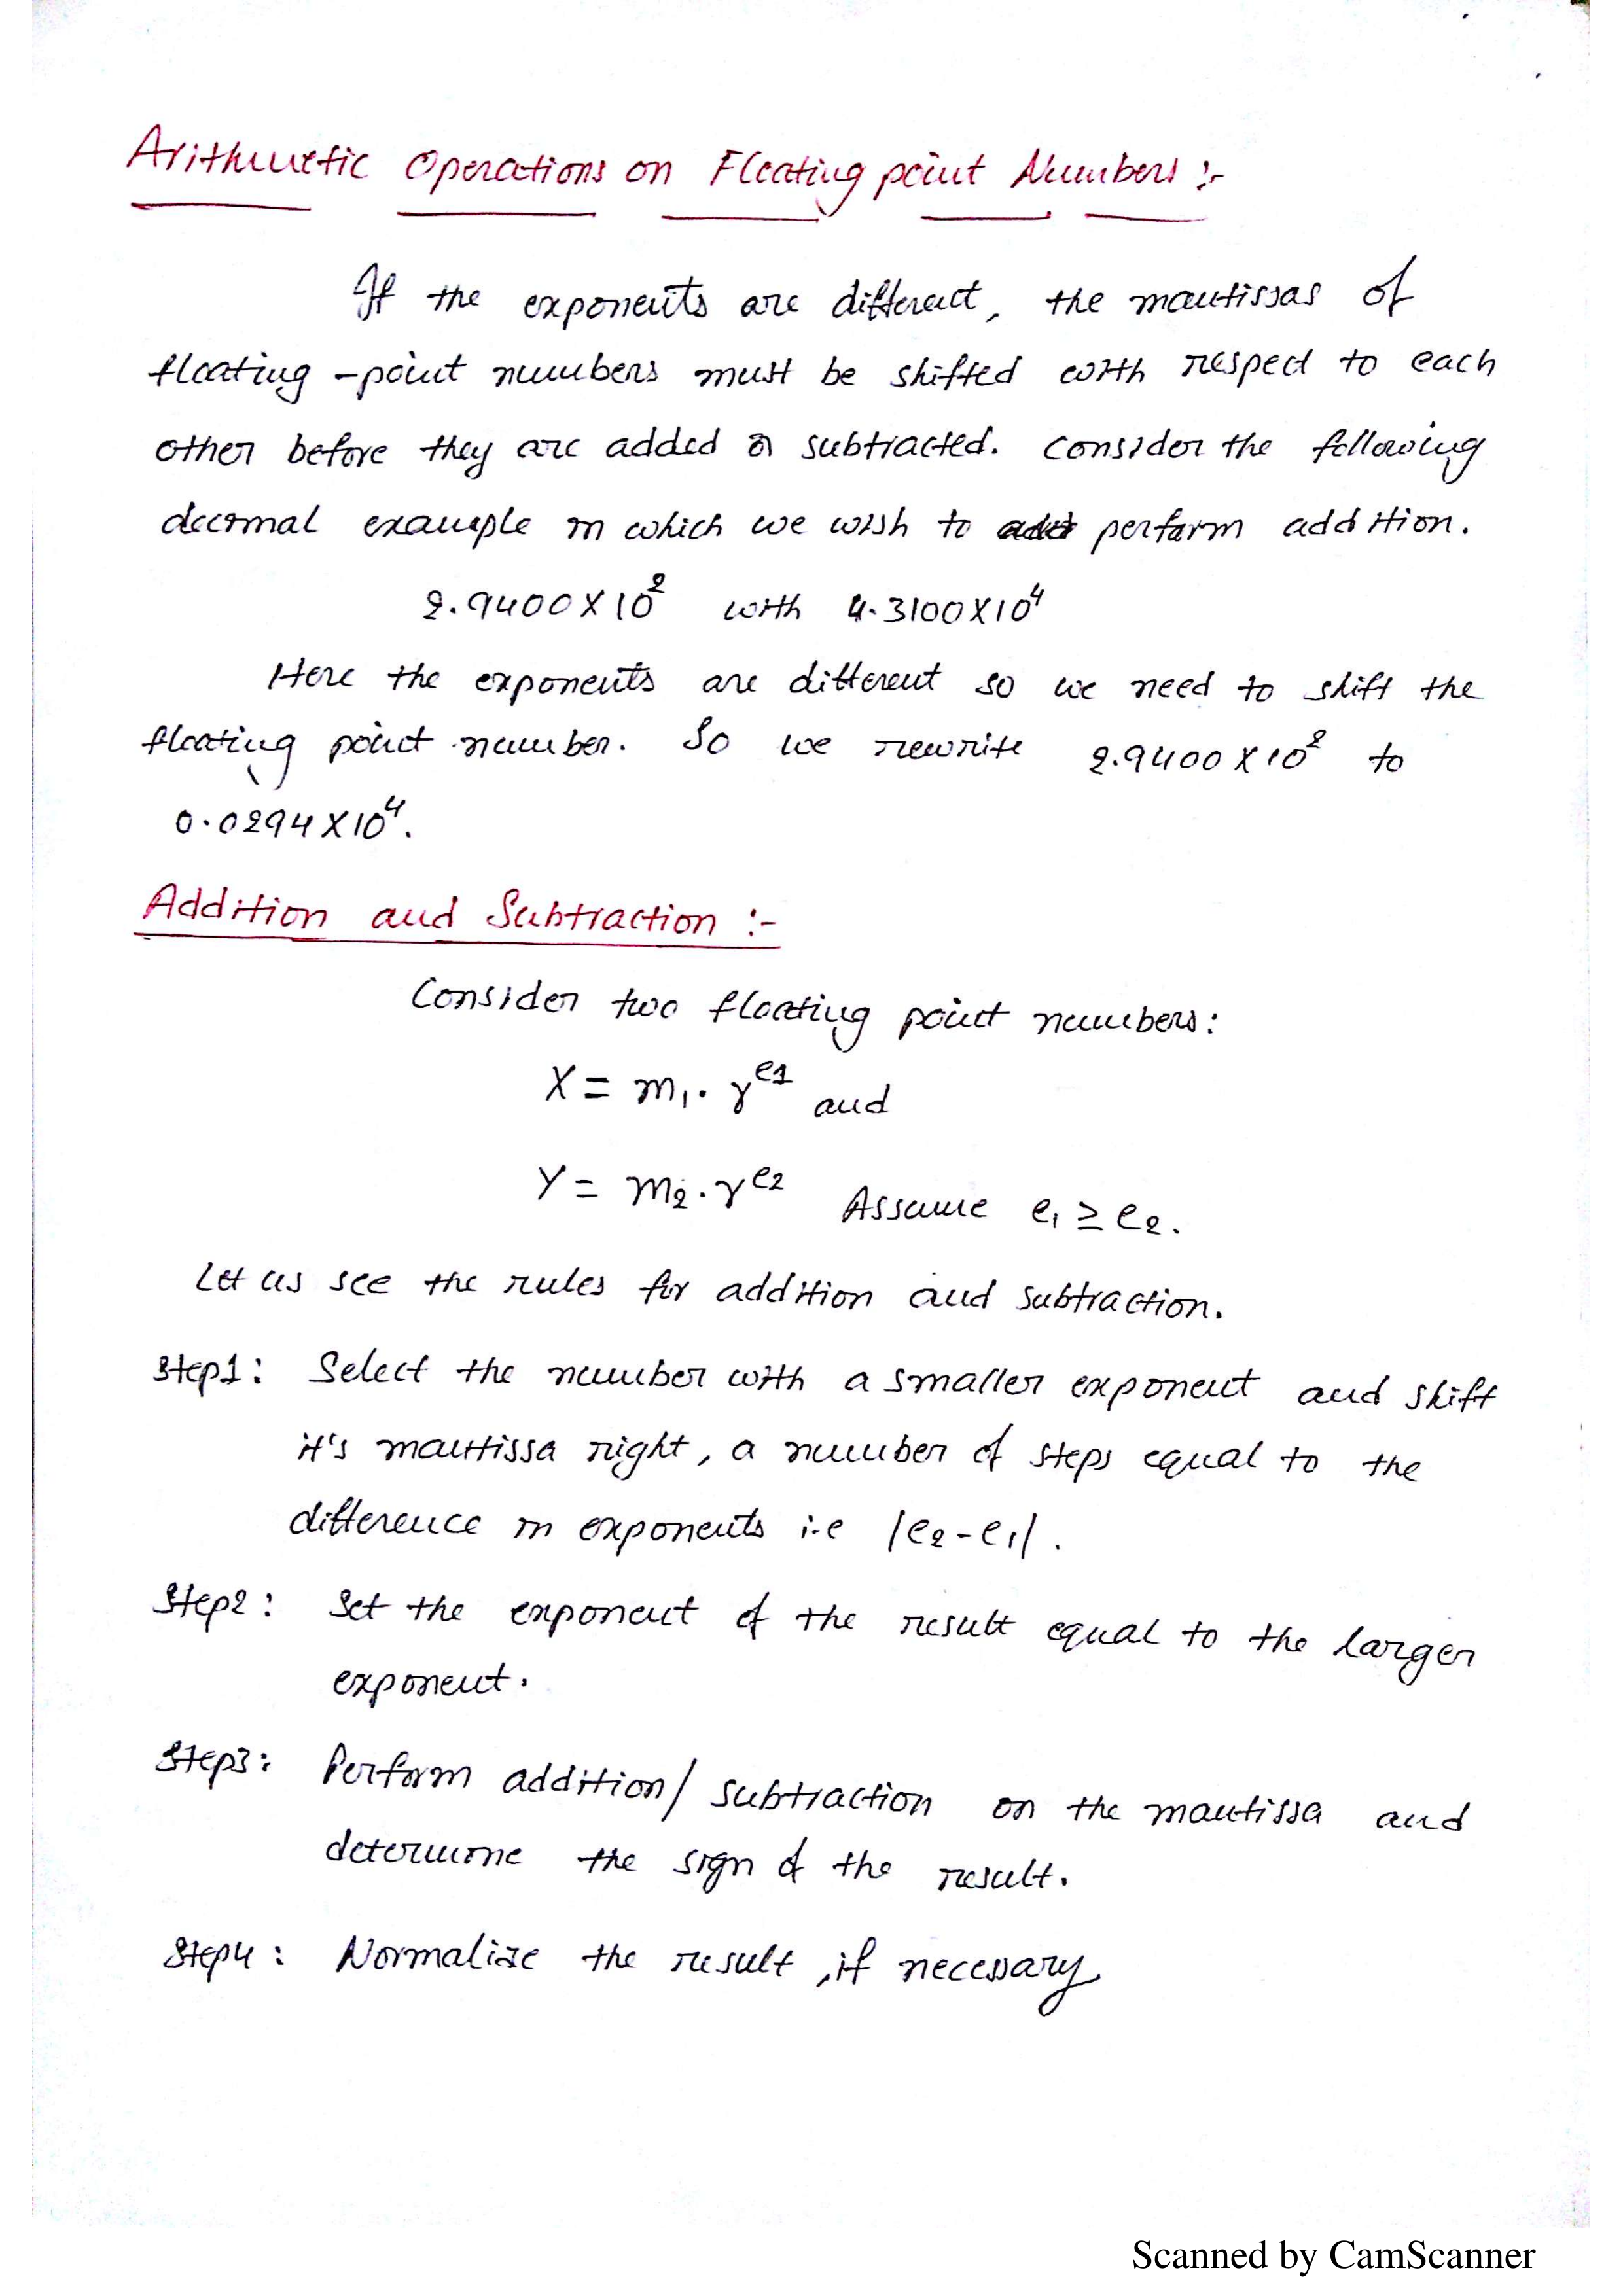 Arithmetic Operations on Floating point Numbers :-
If the exponents are different, the mantissas of
floating -point numbers must be shifted with respect to each
other before they are added or subtracted. Consider the following
decimal example in which we wish to add perform addition.
2.9400X10² with 4.3100X10⁴
Here the exponents are different so we need to shift the
floating point number. So we rewrite 2.9400X10² to
0.0294X10⁴.
Addition and Subtraction :-
Consider two floating point numbers:
X = m₁. r^e1 and
Y = m₂. r^e2 Assume e₁ ≥ e₂.
Let us see the rules for addition and subtraction.
Step1: Select the number with a smaller exponent and shift
it's mantissa right, a number of steps equal to the
difference in exponents i.e |e₂-e₁|.
Step2: Set the exponent of the result equal to the larger
exponent.
Step3: Perform addition/subtraction on the mantissa and
determine the sign of the result.
Step4: Normalize the result, if necessary
Scanned by CamScanner